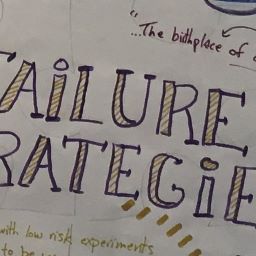 "...The birthplace of
FAiLURE
RATEGiE
with low risk experiments
to be